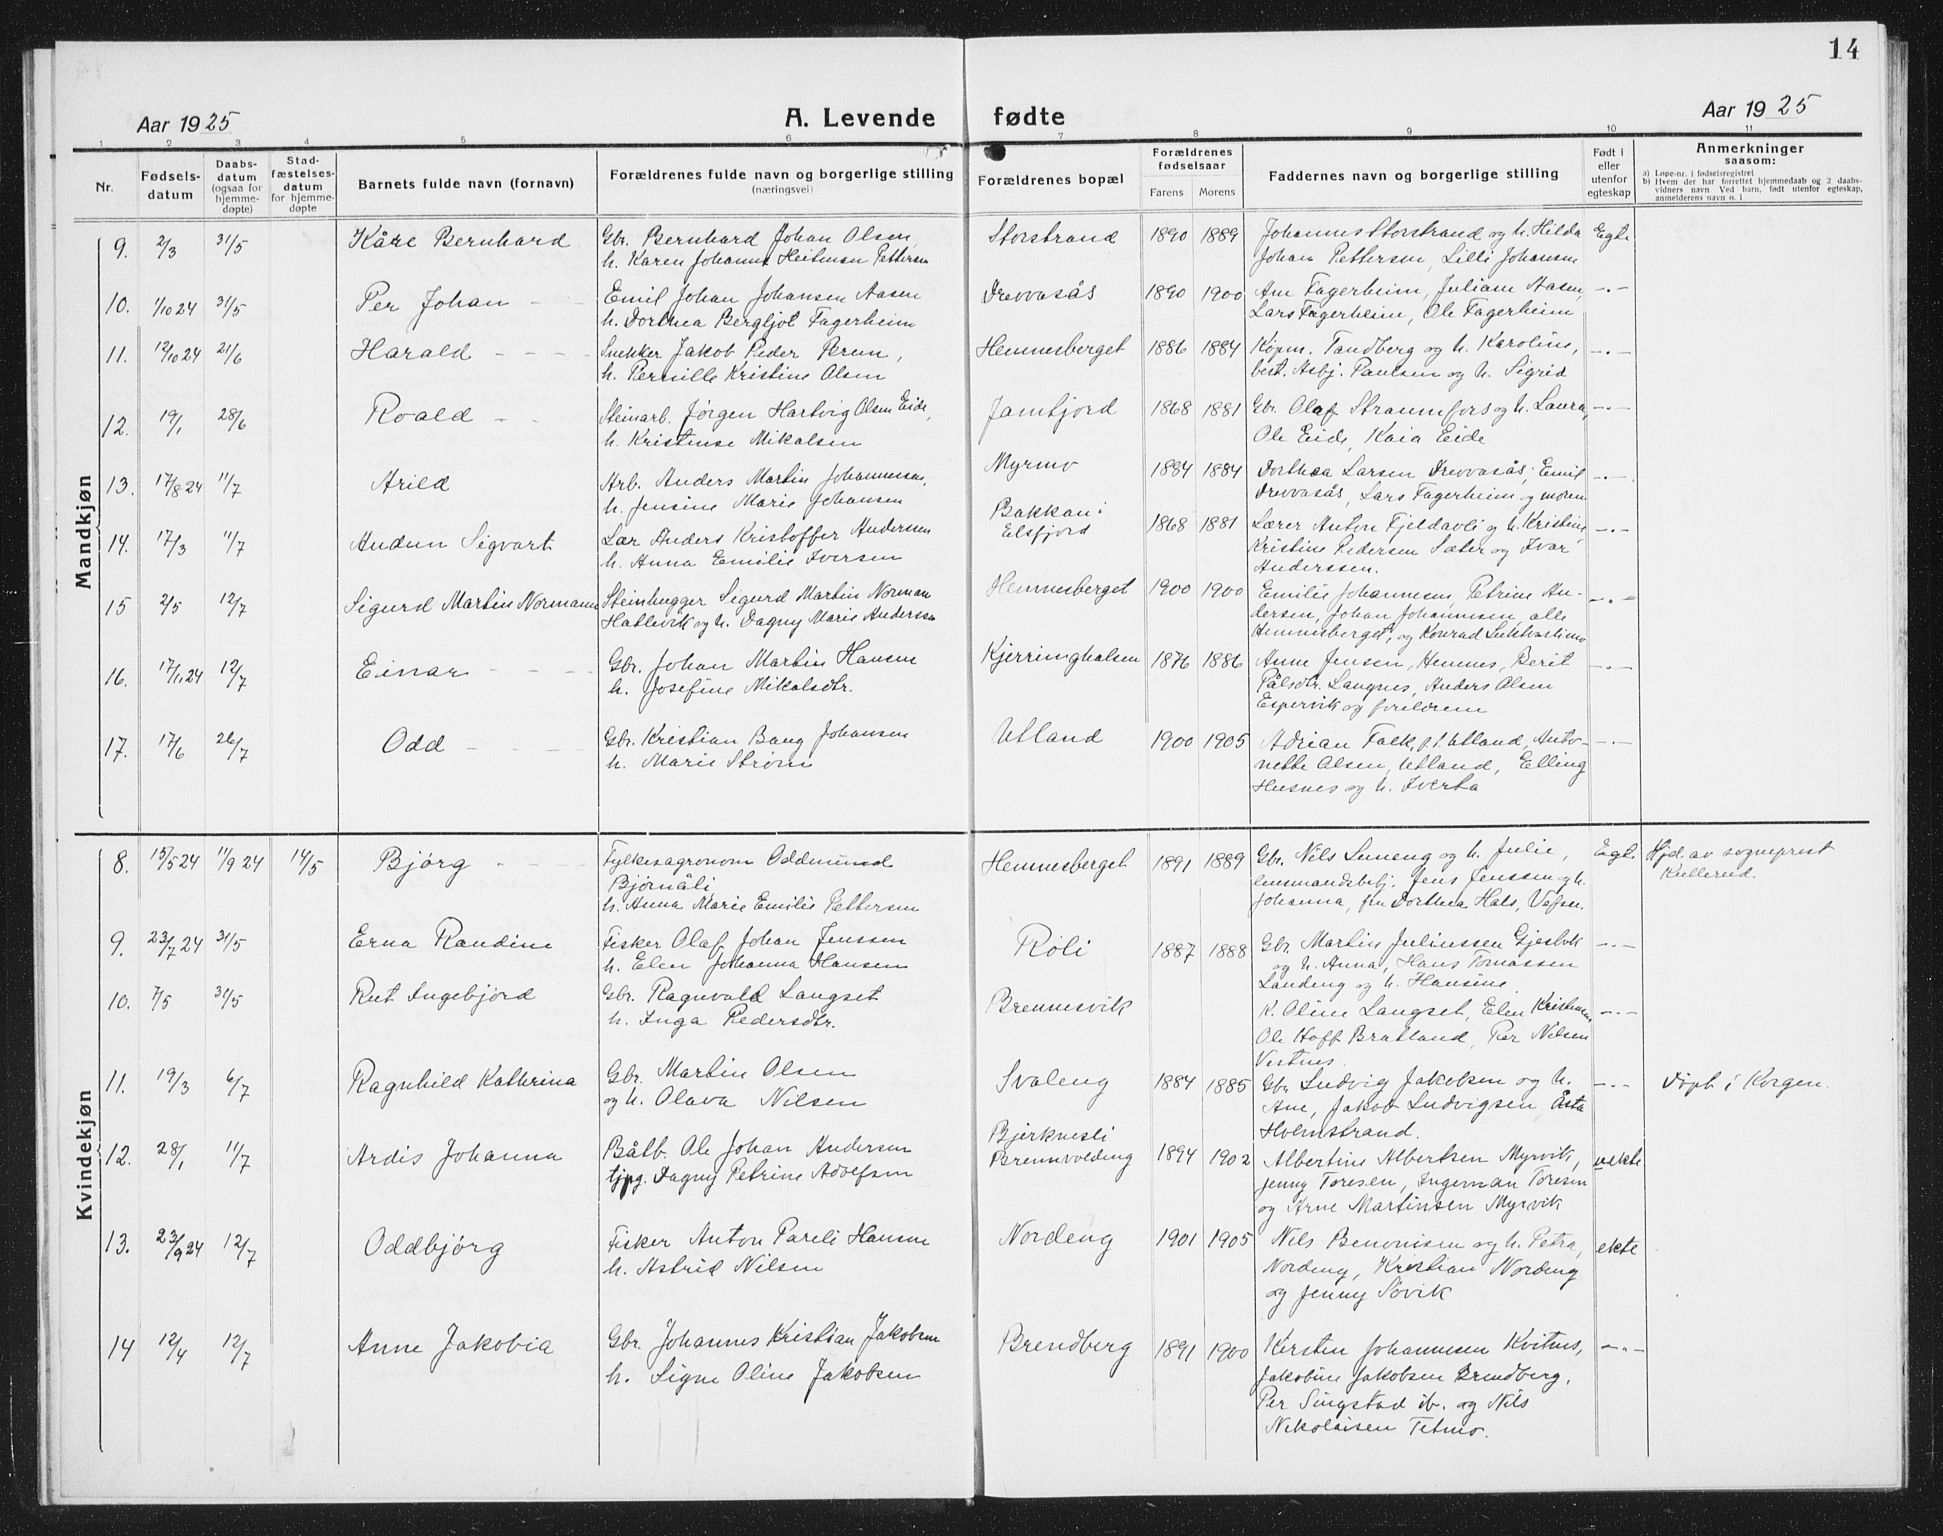 14
Aar 1925
A. Levende
fødte
Aar 1925
1 2 3 4 5 6 7 8 9 10 11
Nr.
Fødsels-
datum
Daabs-
datum
(ogsaa for
hjemme-
døpte)
Stad-
fæstelses-
datum
for hjemme-
døpte
Barnets fulde navn (fornavn)
Forældrenes fulde navn og borgerlige stilling
(næringsvei)
Forældrenes bopæl
Forældrenes
fødselsaar
Farens Morens
Faddernes navn og borgerlige stilling
Født i
eller
utenfor
egteskap
Anmerkninger
saasom:
a) Løpe-nr. i fødselsregistret
b) Hvem der har forrettet hjemmedaab og 2 daabs-
vidners navn. Ved barn, født utenfor egteskap,
anmelderens navn o. l
Mandkjøn
9. 2/3 31/5 Kåre Bernhard Gbr. Bernhard Johan Olsen Storstrand 1890 1889 Johannes Storstrand og h. Hilda Egte
h. Karen Johanna Heitman Pettersen Johan Pettersen, Lilli Johansen
10. 1/10 24 31/5 Per Johan - - Emil Johan Johansen Aasen Drevvasås 1890 1900 Ane Fagerheim, Juliane Aasen, -.-
h. Dorthea Bergljot Fagerheim Lars Fagerheim, Ole Fagerheim
11. 12/10 24 21/6 Harald - - - - Snekker Jakob Peder Brun, Hemnesberget 1886 1884 Køpm. Tandberg og h. Karoline, -.-
h. Pernille Kristine Olsen best. Asbj. Paulsen og h. Sigrid
12. 19/1 28/6 Roald - - Steinarb. Jørgen Hartvig Olsen Eide, Jamtjord 1868 1881 Gbr. Olaf Straumfors og h. Laura, -.-
h. Kristense Mikalsen Ole Eide, Kaia Eide
13. 17/8 24 11/7 Arild Arb. Anders Martin Johannessen, Myrmo 1884 1884 Dorthea Larsen Drevvasås, Emil -.-
h. Jensine Marie Johansen Drevvasås, Lars Fagerheim og moren
14. 17/3 11/7 Audun Sigvart Lær. Anders Kristoffer Anderssen Bakkan i 1868 1881 Lærer Anton Fjeldavli og h. Kristine -.-
h. Anna Emilie Iversen Elsfjord Kristine Pedersen Sæter og Ivar
Anderssen.
15 2/5 12/7 Sigurd Martin Normann Steinhugger Sigurd Martin Norman Hemnesberget 1900 1900 Emilie Johannesen, Petrine An- -.-
Hatlevik og h. Dagny Marie Anderssen dersen, Johan Johannesen, alle
Hemnesberget, og Konrad
16. 17/11 24 12/7 Einar - - - - Gbr. Johan Martin Hansen Kjerringhalsen 1876 1886 Anne Jensen, Hemnes, Berit -.-
h. Josefine Mikalsdtr. Pålsdtr. Langnes, Anders Olsen
Espervik og foreldrene
17. 17/6 26/7 Odd - - - Gbr. Kristian Bang Johansen Utland 1900 1905 Adrian Falk, p.t. Utland, Anto- -.-
h. Marie Strøm nette Olsen, Utland, Elling
Husnes og h. Iverta
Kvindekjøn
8. 15/5 24 11/9 24 14/5 Bjørg - - - Fylkesagronom Oddmund Hemnesberget 1891 1889 Gbr. Nils Luneng og h. Julie, Egt. Hjd. av sogneprest
Bjørnåli lensmandsbetj. Jens Jenssen og h. Kullerud.
h. Anna Marie Emilie Pettersen Johanna, fru Dorthea Hals, Vefsn.
9. 23/7 24 31/5 Erna Randine Fisker Olaf Johan Jenssen Røli 1887 1888 Gbr. Martin Juliussen Gjesbak -.-
h. Elen Johanna Hansen og h. Anna, Hans Tomassen
Landeng og h. Hansine
10. 7/5 31/5 Rut Ingebjørd Gbr. Ragnvald Langset Brennesvik K. Oline Langset, Elen Kristensen -.-
h. Inga Pedersdtr. Ole Hoff Bratland, Per Nilsen
Vestnes.
11. 19/3 6/7 Ragnhild Kathrina Gbr. Martin Olsen Svaleng 1884 1885 Gbr. Ludvig Jakobsen og h. -.- Døpt i Korgen.
og h. Olava Nilsen Ane, Jakob Ludvigsen, Åsta
Holmstrand.
12. 28/1 11/7 Ardis Johanna Båtb. Ole Johan Andersen Bjerknesli 1894 1902 Albertine Albertsen Myrvik, uekte
tjpg. Dagny Petrine Adolfsen Brennvolding Jenny Toresen, Ingeman Toresen
og Arne Martinsen Myrvik
13. 23/9 24 12/7 Oddbjørg Fisker Anton Pareli Hansen Nordeng 1901 1905 Nils Benonisen og h. Petra, ekte
h. Astrid Nilsen Nordeng, Kristian Nordeng
og Jenny Søvik
14 12/4 12/7 Anne Jakobia Gbr. Johannes Kristian Jakobsen Brendberg 1891 1900 Kirsten Johannesen Kvitnes, -.-
h. Signe Oline Jakobsen Jakobine Jakobsen Brendberg,
Per Singstad ib. og Nils
Nikolaisen Tetmo.